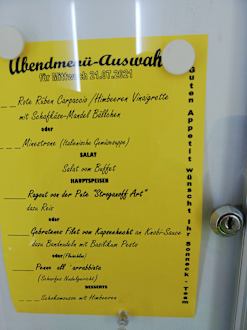 Abendmenü-Auswahl
für Mittwoch 21.07.2021
Rote Rüben Carpaccio /Himbeeren Vinaigrette
mit Schafkäse-Mandel Bällchen
oder
Minestrone (Italienische Gemüsesuppe)
SALAT
Salat vom Buffet
HAUPTSPEISEN
Ragout von der Pute "Stroganoff Art"
dazu Reis
oder
Gebratenes Filet vom Kapsenhecht an Knobi-Sauce
dazu Bandnudeln mit Basilikum Pesto
oder (Fleischlos)
Penne all 'arrabbiata
(Scharfes Nudelgericht)
DESSERTS
Schokomousse mit Himbeeren
Guten Appetit wünscht Ihr Sonneck-Team